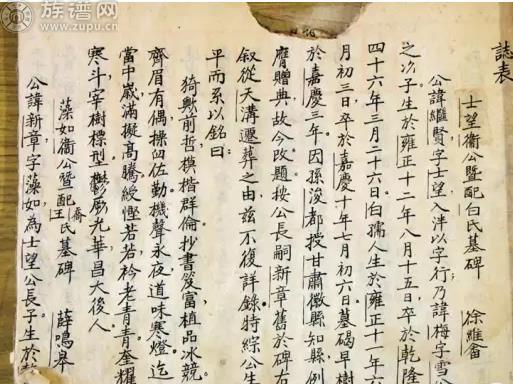 族谱网
www.zupu.cn
誌表
士望衞公暨配白氏墓碑 徐維畬
公諱繼賢字士望入泮以字行乃諱梅字雪公
之次子生於雍正十二年八月十五日卒於乾隆
四十六年三月二十六日白孺人生於雍正十一年
月初三日卒於嘉慶十年七月初六日墓碣早樹
於嘉慶三年因孫浚都授甘肅徽縣知縣例
膺贈典故今改題按公長嗣新章舊於碑右
叙從天溝遷葬之由茲不復詳錄特綜公生
平而系以銘曰
猗歟前哲模楷群倫抄書笈富植品氷競
齊眉有偶操臼佐勤機聲永夜道味寒燈迄
當中嵗滿擬髙騰綬慳若若衿老青青奎耀
寒斗宰樹標型鬱鬱光華昌大後人
藻如衞公暨配喬氏王氏墓碑 薛鳴皋
公諱新章字藻如為士望公長子生於乾